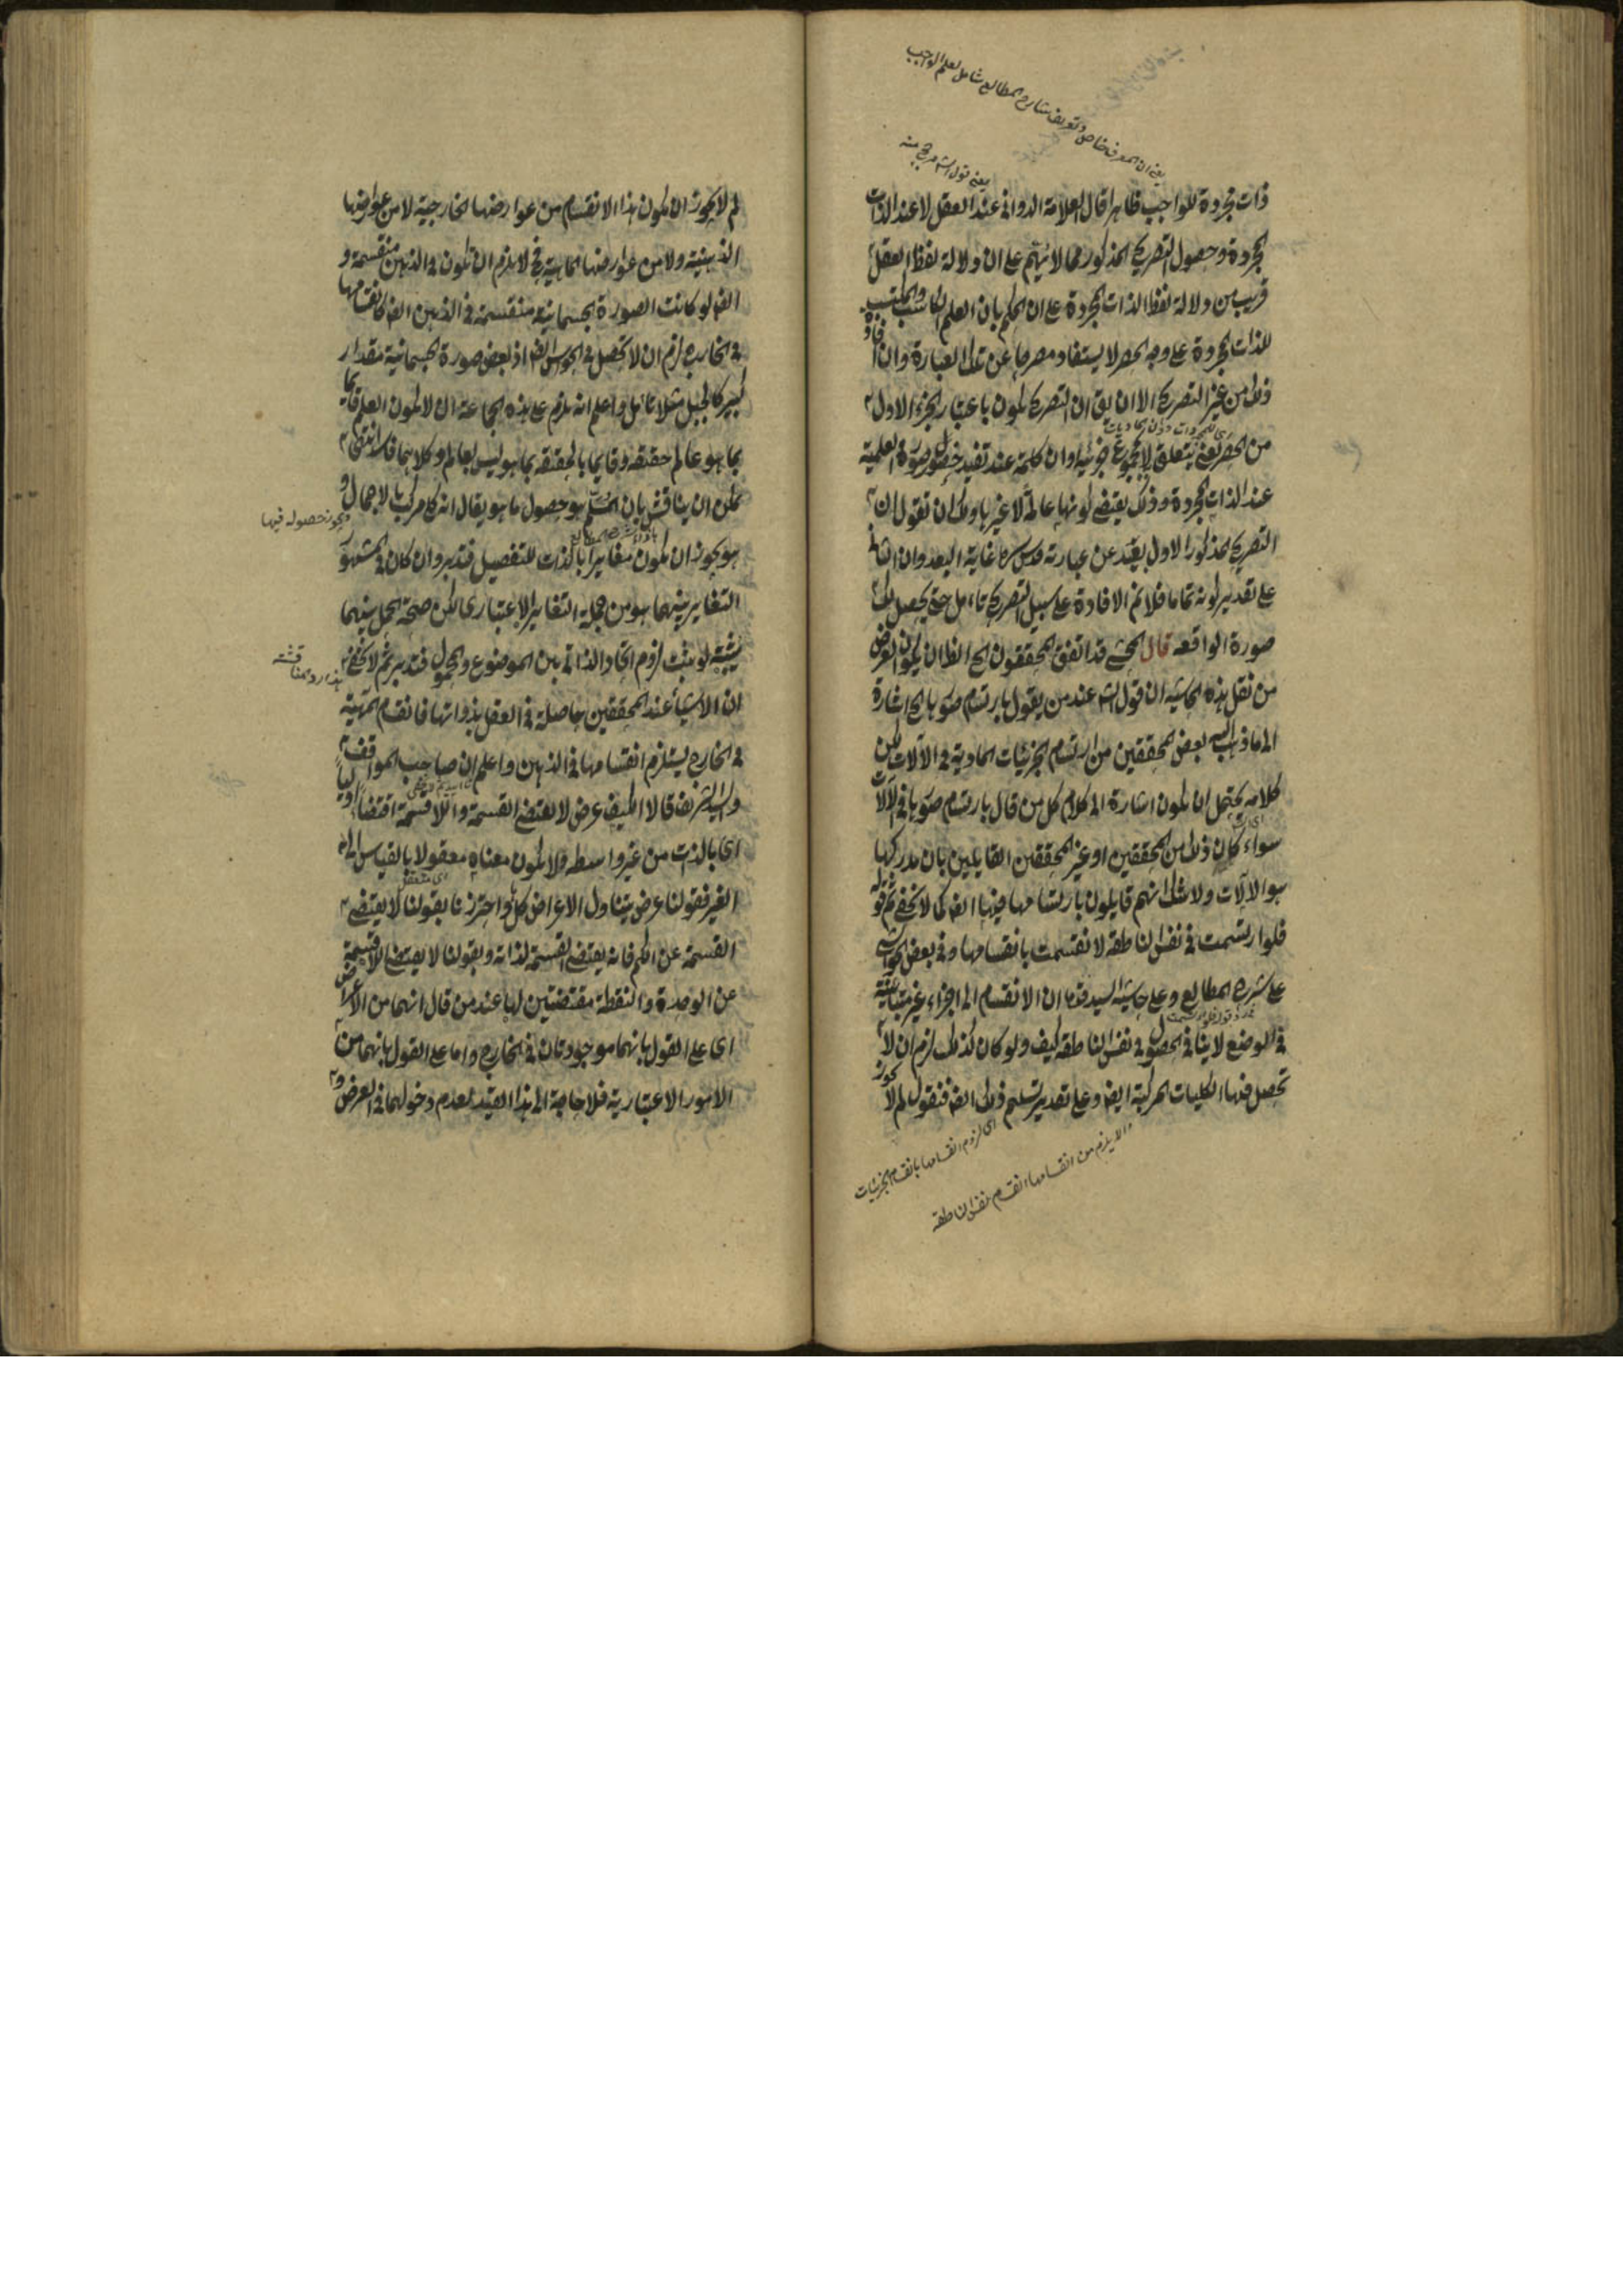 يعنى ان المعرف خاص وتعريف شارح المطالع شامل لعلم الواجب
يعنى قول
ذات مجردة للواجب ظاهرا قال العلامة الدوانى عند العقل لا عند الذات
المجردة وحصول التصريح المذكور مما لا يتم على ان دلالة لفظ العقل
قريب من دلالة لفظ الذات المجردة على ان الحكم بان العلم
للذات المجردة على وجه الحصر لا يستفاد مصرحا عن تلك العبارة وان
ذلك من غير التصريح الا ان يق ان التصريح يكون باعتبار الجزء الاول
من الحصر يعنى يتعلق لا بمجموع جزئيه وان كلمة عند تفيد حصول صورة العلمية
عند الذات المجردة وذلك يقتضى كونها عالمة لا غيرها ولك ان تقول ان
التصريح المذكور الاول بعيد عن عبارته قدس سره غاية البعد وان الثانى
على تقدير كونه تماما فلا تم الافادة على سبيل التصريح تامل حتى يحصل لك
صورة الواقعة قال المحشى قد اتفق المحققون الخ الظ ان يكون الغرض
من نقل هذه الحاشية ان قول الش عند من يقول بارتسام صورها الخ اشارة
الى ما ذهب اليه بعض المحققين من ارتسام الجزئيات المادية فى الآلات لكن
كلامه يحتمل ان يكون اشارة الى كلام كل من قال بارتسام صورها فى الآلات
سواء كان ذلك من المحققين او غير المحققين القايلين بان مدركها
هو الآلات ولا شك انهم قايلون بارتسامها فيها ايض كما لا يخفى ثم قوله
فلو ارتسمت فى نفس الناطقة لانقسمت بانقسامها وفى بعض الحواشى
على شرح المطالع وعلى حاشية السيد قدس ان الانقسام الى اجزاء غير متباينة
فى الوضع لا ينافى الحصول فى نفس الناطقة كيف ولو كان كذلك لزم ان لا
تحصل فيها الكليات المركبة ايض وعلى تقدير تسليم ذلك ايض فنقول لم لا يجوز
اى لزوم انقسامها بانقسام الجزئيات
والا يلزم من انقسامها انقسام نفس الناطقة
لم لا يجوز ان يكون هذا الانقسام من عوارضها الخارجية لا من عوارضها
الذهنية ولا من عوارضها الماهية فح لا يلزم ان تكون فى الذهن منقسمة و
ايض لو كانت الصورة الجسمانية منقسمة فى الذهن ايض كانقسامها
فى الخارج لزم ان لا تحصل فى الحواس ايض اذ بعض صورة الجسمانية مقدار
كبير كالجبل مثلا تامل واعلم انه يلزم على هذه الجماعة ان لا يكون العلم قايما
بما هو عالم حقيقة وقايما بالحقيقة بما هو ليس بعالم وكلاهما فاسد انتهى
يمكن ان يناقش بان المسلم هو حصول ما هو يقال انه كامر كب بالاجمال و
ويجوز حصوله فيها
هو يجوز ان يكون مغايرا بالذات للتفصيل فتدبر وان كان فى المشهور
التغاير بينهما هو من جملة التغاير الاعتبارى لكن صحة الحمل بينهما
يثبته لو ثبت لزوم اتحاد الذاتى بين الموضوع والمحمول فتدبر ثم لا يخفى
هذا رد مناقشة
ان الاشياء عند المحققين حاصلة فى العقل بذواتها فانقسام المهية
فى الخارج يستلزم انقسامها فى الذهن واعلم ان صاحب المواقف
والسيد الشريف قالا الكيف عرض لا يقتضى القسمة واللاقسمة اقتضاء اوليا
اى بالذات من غير واسطه ولا يكون معناه معقولا بالقياس الى
الغير فقولنا عرض يتناول الاعراض كل واحترزنا بقولنا لا يقتضى
القسمة عن الكم فانه يقتضى القسمة لذاته وبقولنا لا يقتضى اللاقسمة
عن الوحدة والنقطة مقتضيتين لها عند من قال انهما من الاعراض
اى على القول بانهما موجودتان فى الخارج واما على القول بانهما من
الامور الاعتبارية فلا حاجة الى هذا القيد لعدم دخولهما فى العرض و